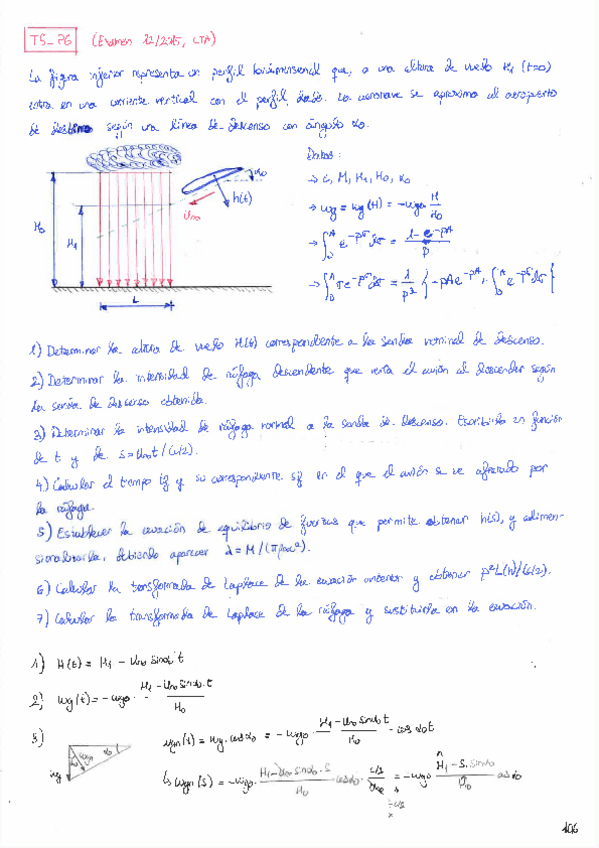 T5_P6 (Examen 12/2015, LTA)
La figura inferior representa un perfil bidimensional que, a una altura de vuelo H₁ (t=0)
entra en una corriente vertical con el perfil, dado. La aeronave se aproxima al aeropuerto
de destino según una línea de descenso con ángulo α₀.
Datos:
→ c, M, H₁, H₀, α₀
→ wg = wg(H) = -wg₀ H/H₀
→ ∫₀^A e^-pσ dσ = (1-e^-pA)/p
→ ∫₀^A σe^-pσ dσ = 1/p² { -pAe^-pA
α₀
h(t)
U∞
H₀
H₁
L
1) Determinar la altura de vuelo H(t) correspondiente a la senda nominal de descenso.
2) Determinar la intensidad de ráfaga descendente que vería el avión al descender según
la senda de descenso obtenida.
3) Determinar la intensidad de ráfaga normal a la senda de descenso. Escribirla en función
de t y de s=U∞t/(c/2).
4) Calcular el tiempo tg y su correspondiente sg en el que el avión se ve afectado por
la ráfaga.
5) Establecer la ecuación de equilibrio de fuerzas que permite obtener h(s), y adimen-
sionalizarla, debiendo aparecer λ = M/(πρ∞c²).
6) Calcular la transformada de Laplace de la ecuación anterior y obtener p²L(h)/(c/2).
7) Calcular la transformada de Laplace de la ráfaga y sustituirla en la ecuación.
1) H(t) = H₁ - U∞ sinα₀ t
2) wg(t) = -wg₀ · (H₁ - U∞ sinα₀ · t)/H₀
3) wgn(t) = wg · cosα₀ = -wg₀ · (H₁ - U∞ sinα₀ t)/H₀ · cosα₀
wgn(s) = -wg₀
106